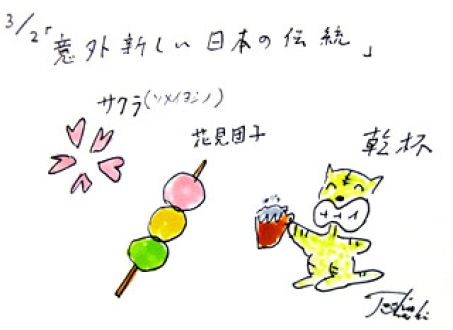 3/2「意外新しい日本の伝統」
サクラ(ソメイヨシノ)
花見団子
乾杯